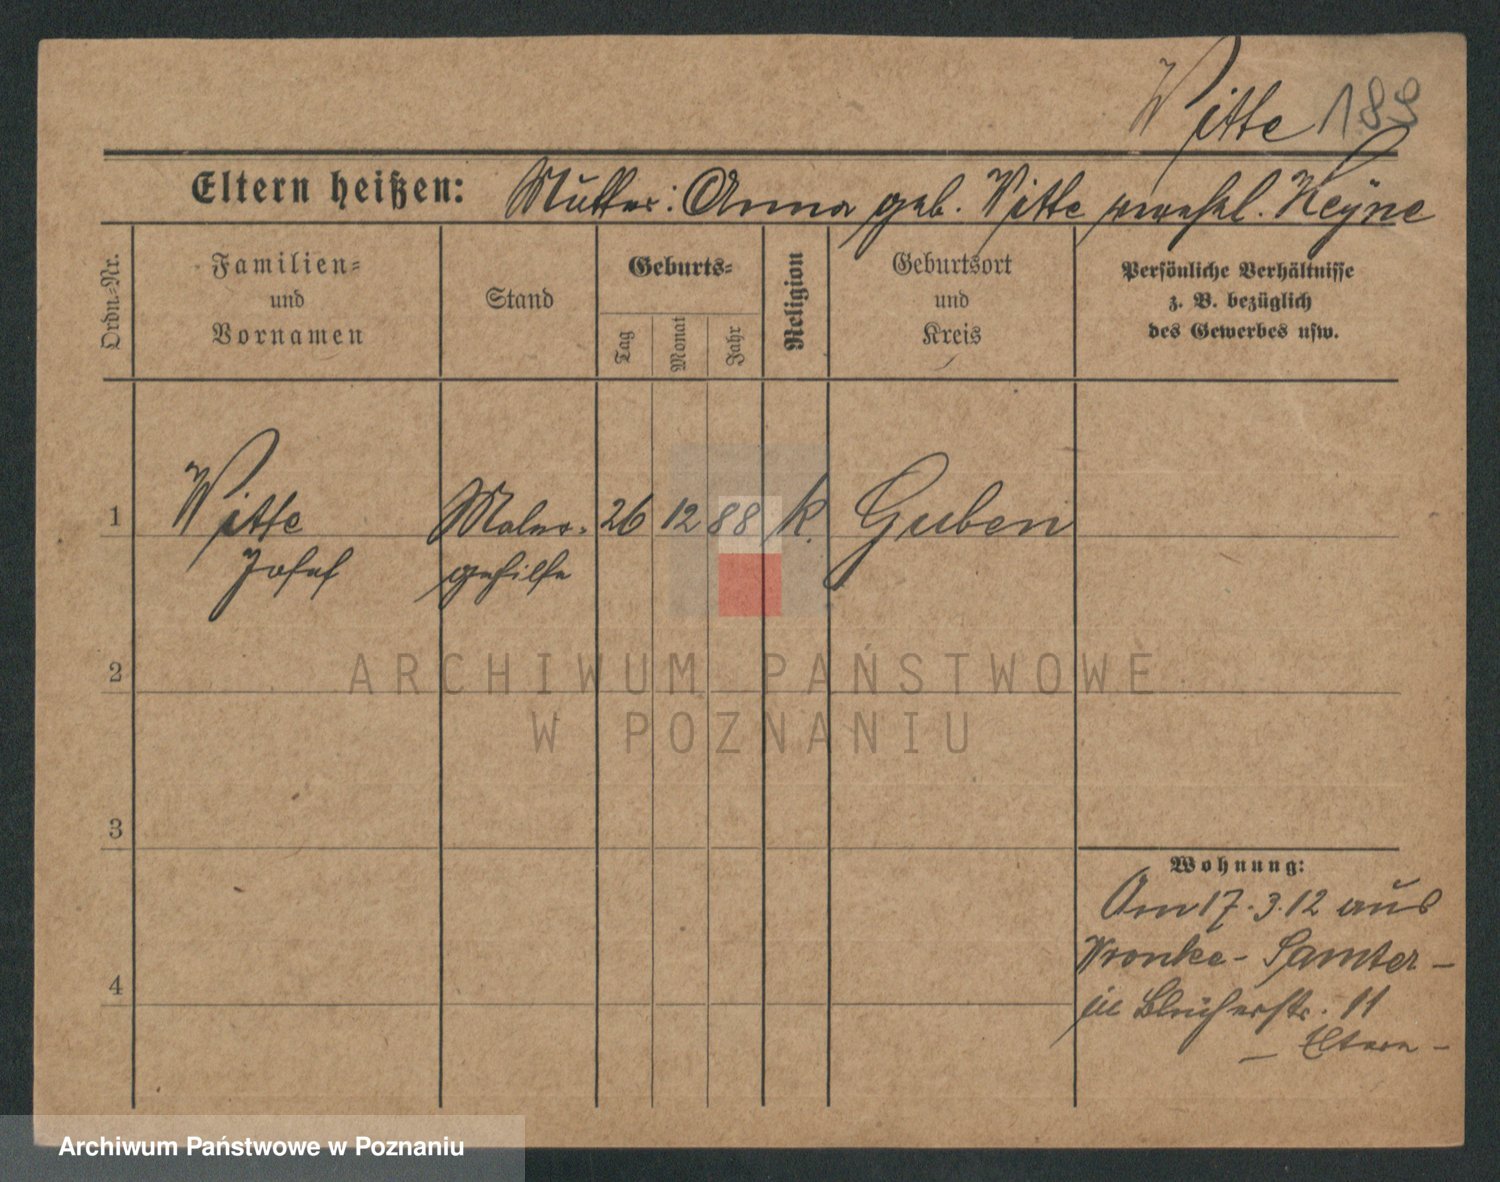 Witte 188
Eltern heißen: Mutter: Anna geb. Witte verehel. Heyne
Ordn.-Nr.
Familien-
und
Vornamen
Stand
Geburts-
Tag
Monat
Jahr
Religion
Geburtsort
und
Kreis
Persönliche Verhältnisse
z. B. bezüglich
des Gewerbes usw.
1 Witte Maler- 26 12 88 k. Guben
Josef gehilfe
ARCHIWUM PAŃSTWOWE
W POZNANIU
2
3
4
Wohnung:
Am 17.3.12 aus
Wronke - Samter -
in Blücherstr. 11
- Eltern -
Archiwum Państwowe w Poznaniu